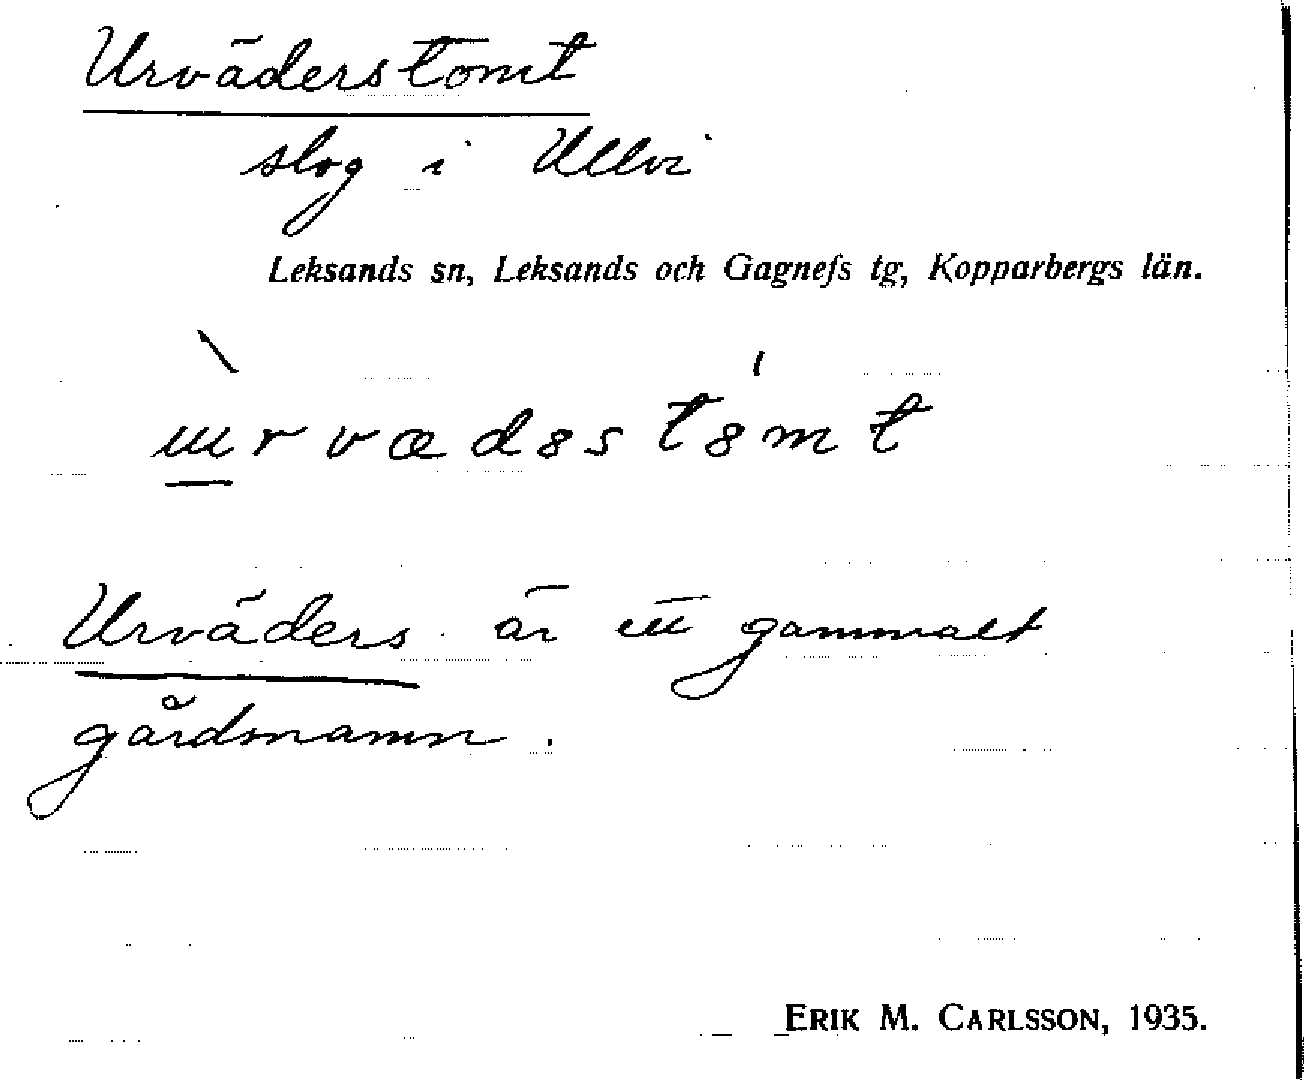 Urväderstomt
slog i Ullvi
Leksands sn, Leksands och Gagnefs tg, Kopparbergs län.
Urväders är ett gammalt
gårdsnamn.
ERIK M. CARLSSON, 1935.